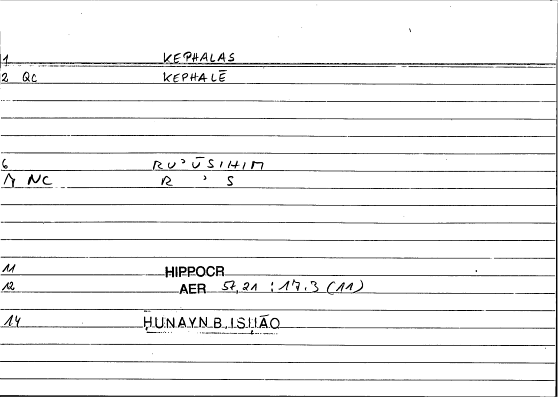 1 KEPHALAS
2 QC KEPHALĒ
6 RUʾŪSIHIM
7 NC R ʾ S
11 HIPPOCR
12 AER 57,21 : 17.3 (11)
14 ḤUNAYN B. ISḤĀQ